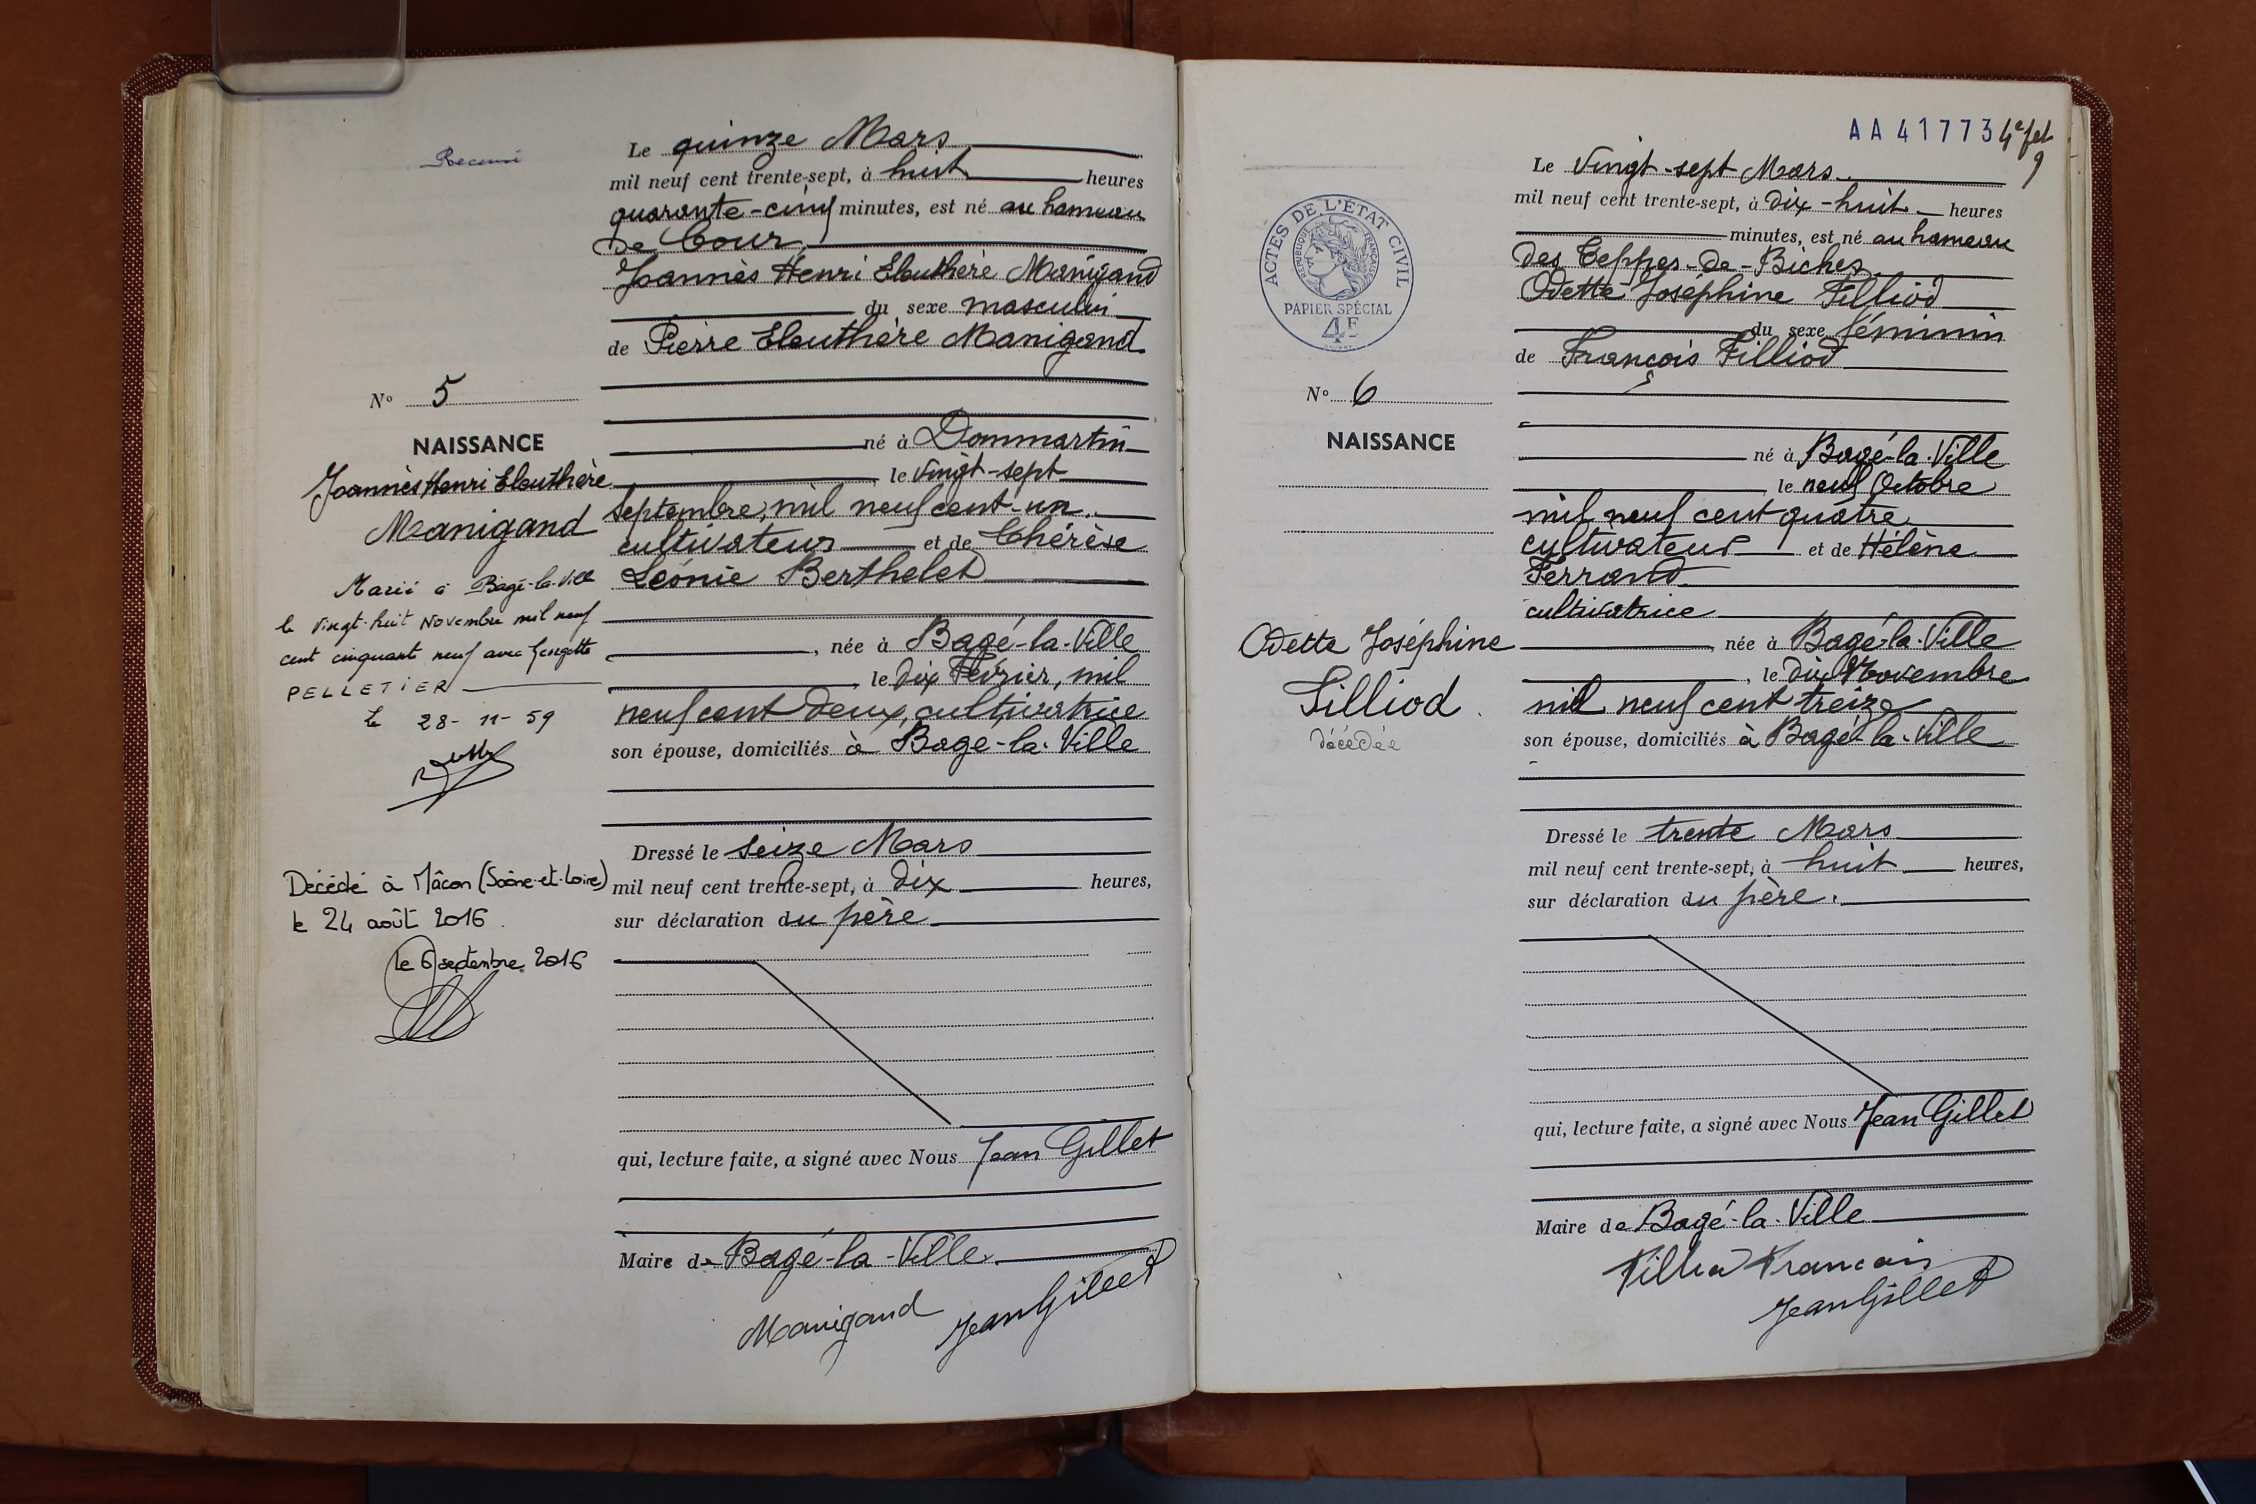 Recensé
Le quinze Mars
mil neuf cent trente-sept, à huit heures
quarante-cinq minutes, est né au hameau
de Cour,
Joannès Henri Eleuthère Manigand
du sexe masculin
de Pierre Eleuthère Manigand
né à Dommartin
le vingt-sept
septembre, mil neuf cent-un.
cultivateur et de Thérèse
Léonie Berthelet
, née à Bagé-la-Ville
, le dix Février, mil
neuf cent deux, cultivatrice
son épouse, domiciliés à Bagé-la-Ville
Dressé le seize Mars
mil neuf cent trente-sept, à dix heures,
sur déclaration du père
qui, lecture faite, a signé avec Nous Jean Gillet
Maire de Bagé-la-Ville.
Manigand Jean Gillet
No 5
NAISSANCE
Joannès Henri Eleuthère
Manigand
Marié à Bagé-la-Ville
le vingt-huit Novembre mil neuf
cent cinquante neuf avec Georgette
PELLETIER
le 28-11-59
Décédé à Mâcon (Saône-et-Loire)
le 24 août 2016.
le 6 septembre 2016
AA41773 4e fet
9
Le vingt-sept Mars
mil neuf cent trente-sept, à dix-huit heures
minutes, est né au hameau
des Teppes-de-Biches
Odette Joséphine Filliod
du sexe féminin
de François Filliod
né à Bagé-la-Ville
, le neuf Octobre
mil neuf cent quatre
cultivateur et de Hélène
Ferrand
cultivatrice
, née à Bagé-la-Ville
, le dix Novembre
mil neuf cent treize
son épouse, domiciliés à Bagé-la-Ville
Dressé le trente Mars
mil neuf cent trente-sept, à huit heures,
sur déclaration du père.
qui, lecture faite, a signé avec Nous Jean Gillet
Maire de Bagé-la-Ville
Filliod Francois
Jean Gillet
ACTES DE L'ÉTAT CIVIL
RÉPUBLIQUE FRANÇAISE
PAPIER SPÉCIAL
4F
No 6
NAISSANCE
Odette Joséphine
Filliod
décédée